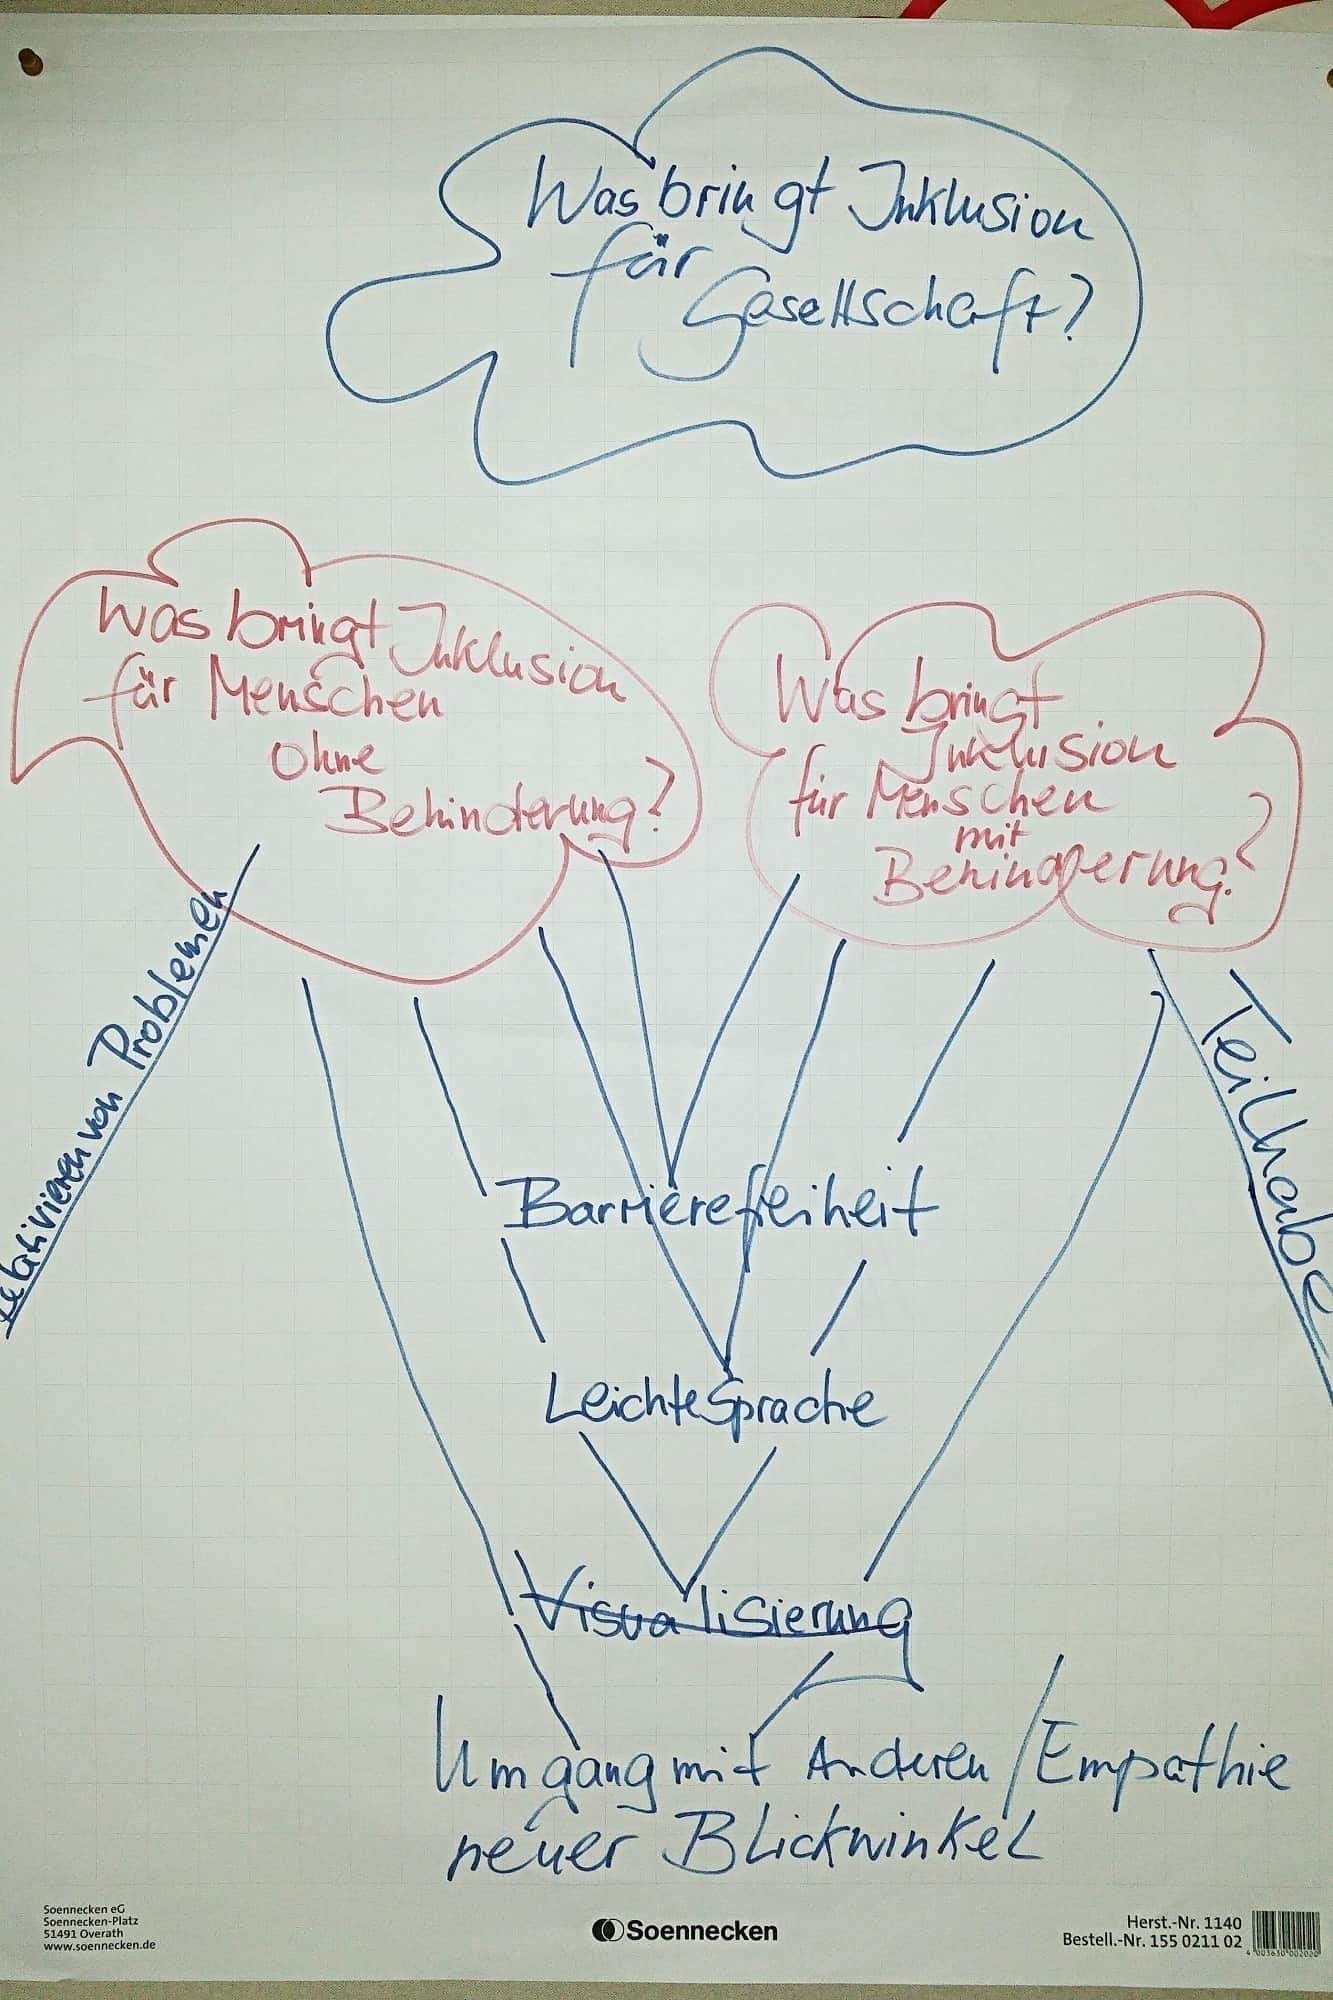 Was bringt Inklusion
für
Gesellschaft?
Was bringt Inklusion
für Menschen
ohne
Behinderung?
Was bringt
Inklusion
für Menschen
mit
Behinderung?
von Problemen
Teilhabe
Barrierefreiheit
Leichte Sprache
Visualisierung
Umgang mit Anderen / Empathie
neuer Blickwinkel
Soennecken eG
Soennecken-Platz
51491 Overath
www.soennecken.de
Soennecken
Herst.-Nr. 1140
Bestell.-Nr. 155 0211 02